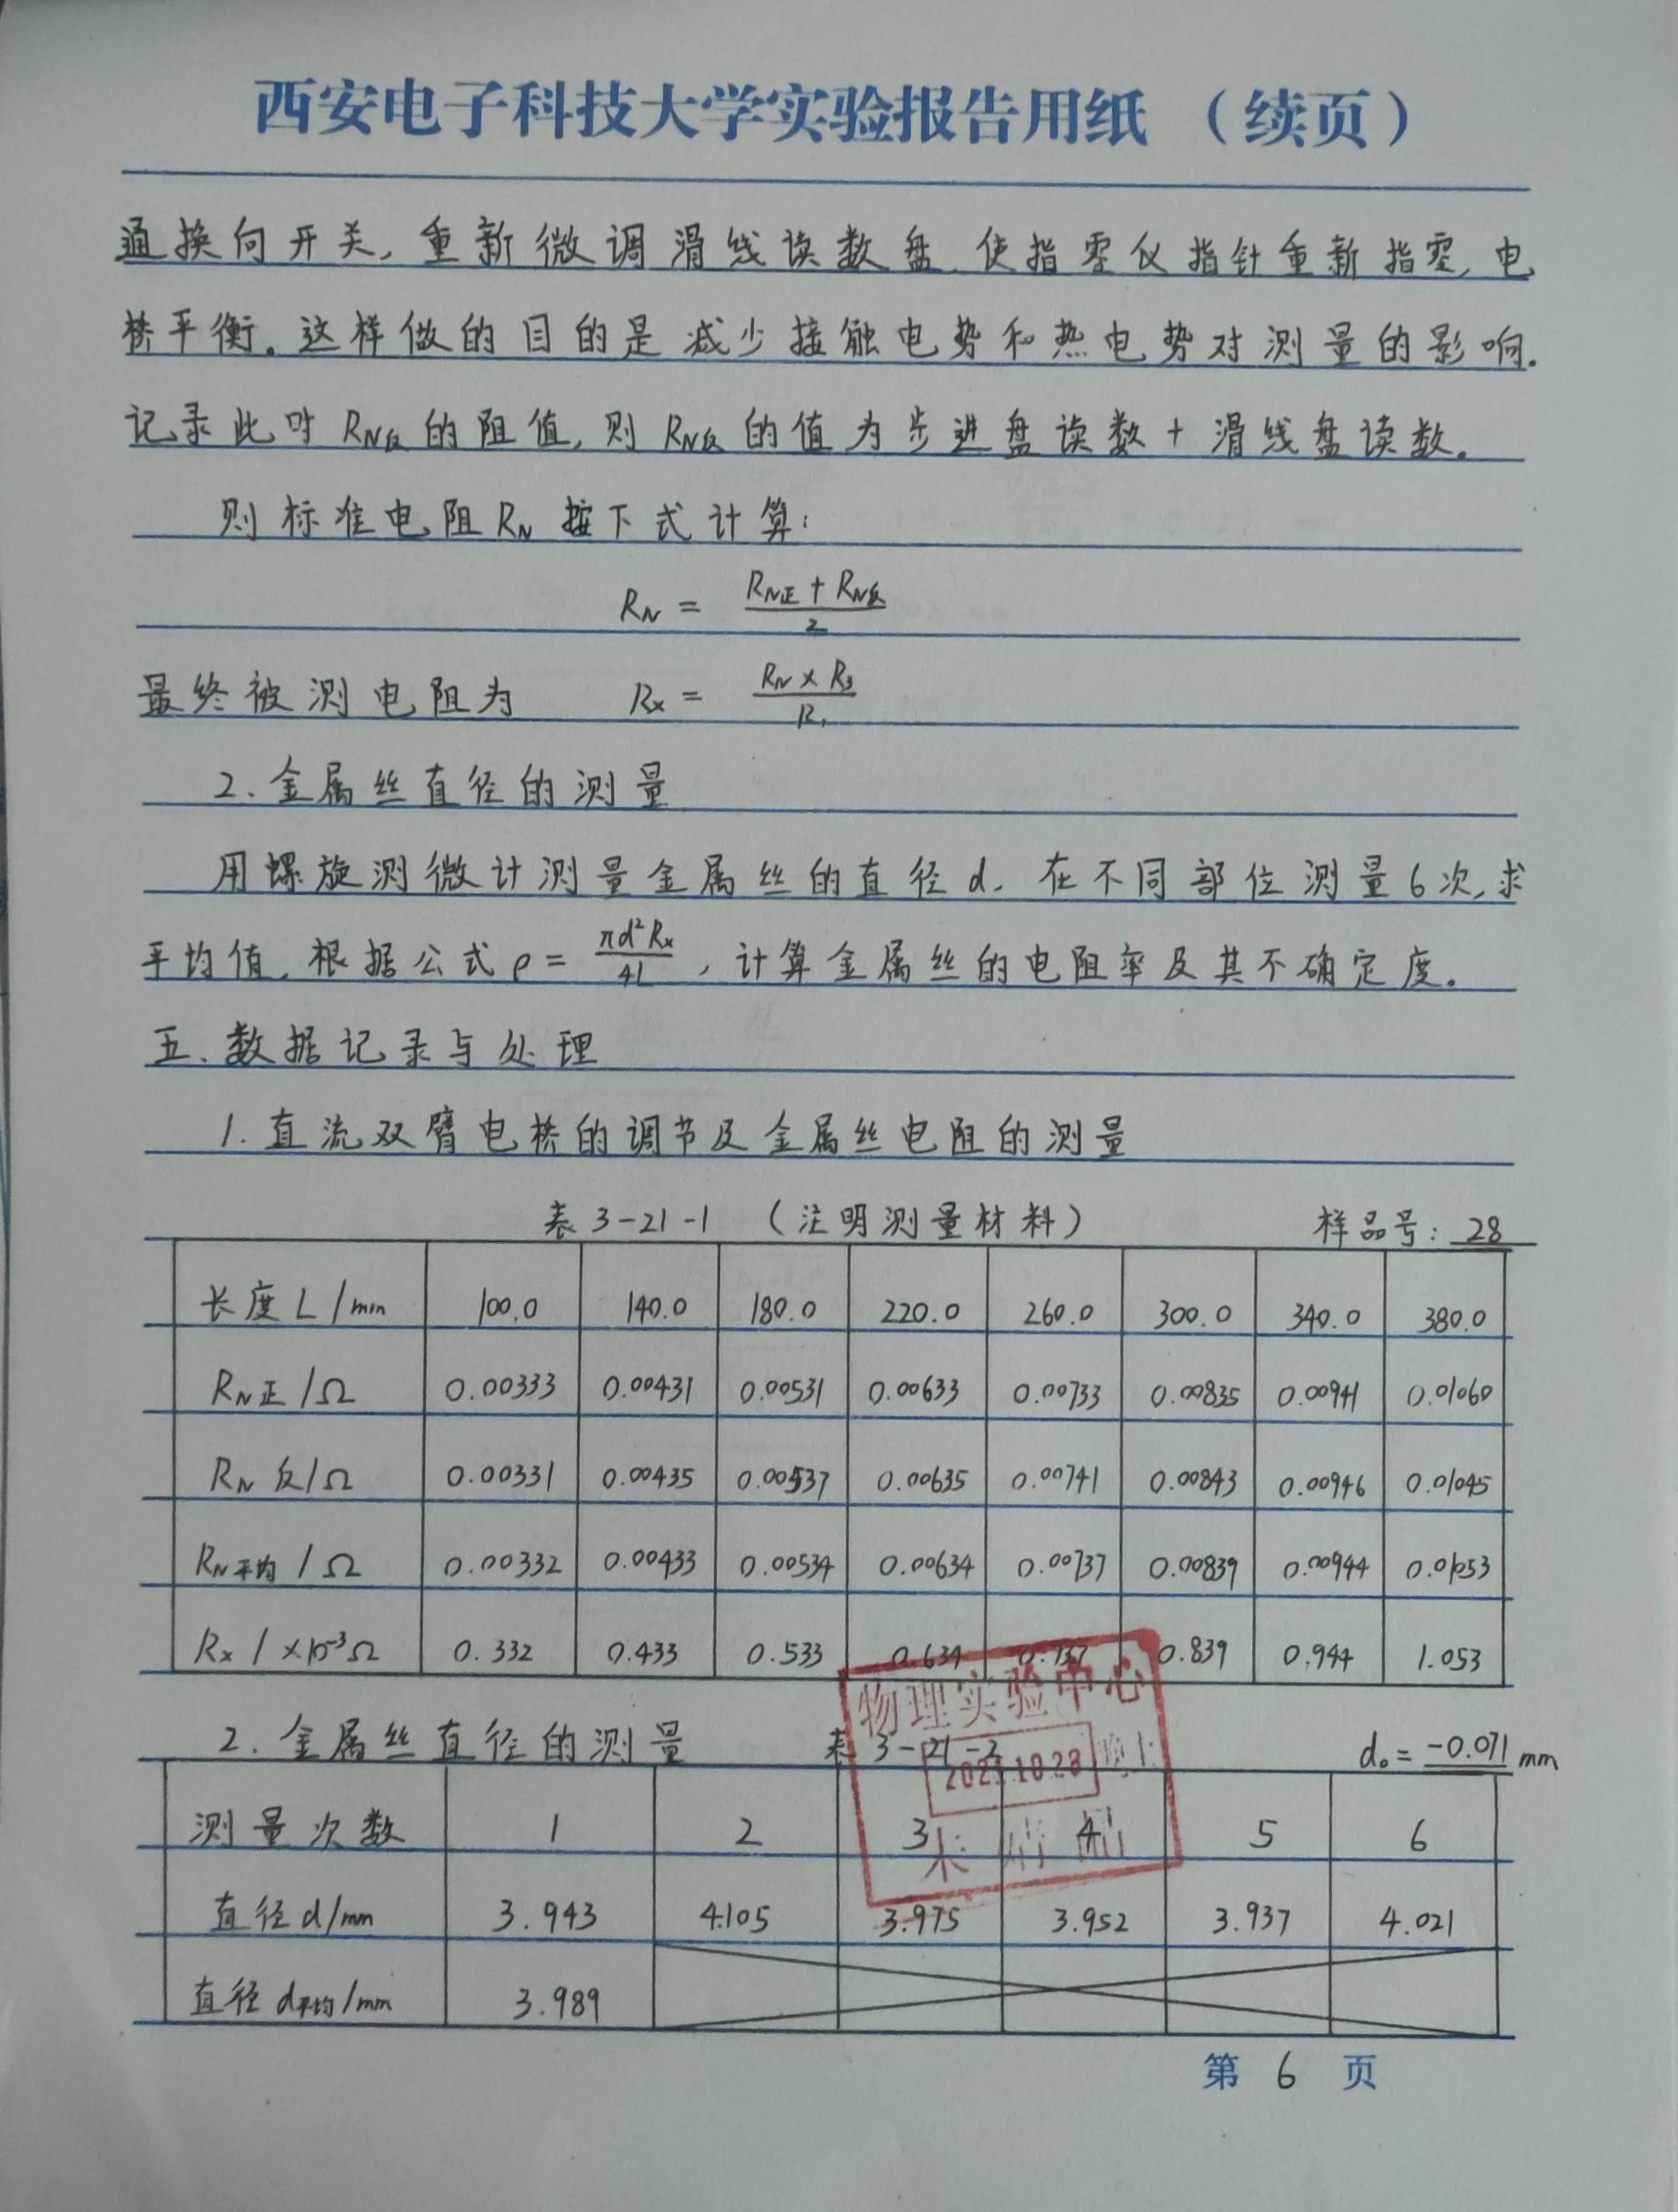 西安电子科技大学实验报告用纸 (续页)
通换向开关, 重新微调滑线读数盘 使指零仪指针重新指零, 电
桥平衡。这样做的目的是减少接触电势和热电势对测量的影响.
记录此时RN反的阻值, 则RN反的值为步进盘读数+滑线盘读数。
则标准电阻RN按下式计算:
RN = (RN正+RN反)/2
最终被测电阻为 Rx = (RN×R3)/R1
2、金属丝直径的测量
用螺旋测微计测量金属丝的直径d, 在不同部位测量6次, 求
平均值, 根据公式ρ=πd²Rx/4L, 计算金属丝的电阻率及其不确定度。
五、数据记录与处理
1. 直流双臂电桥的调节及金属丝电阻的测量
表3-21-1 (注明测量材料) 样品号: 28
长度L/mm 100.0 140.0 180.0 220.0 260.0 300.0 340.0 380.0
RN正/Ω 0.00333 0.00431 0.00531 0.00633 0.00733 0.00835 0.00941 0.01060
RN反/Ω 0.00331 0.00435 0.00537 0.00635 0.00741 0.00843 0.00946 0.01045
RN平均/Ω 0.00332 0.00433 0.00534 0.00634 0.00737 0.00839 0.00944 0.01053
Rx/×10⁻³Ω 0.332 0.433 0.533 0.634 0.737 0.839 0.944 1.053
物理实验中心
2. 金属丝直径的测量 表3-21-2 d₀=-0.071mm
晚上
测量次数 1 2 3 4 5 6
直径d/mm 3.943 4.105 3.975 3.952 3.937 4.021
直径d平均/mm 3.989
第 6 页